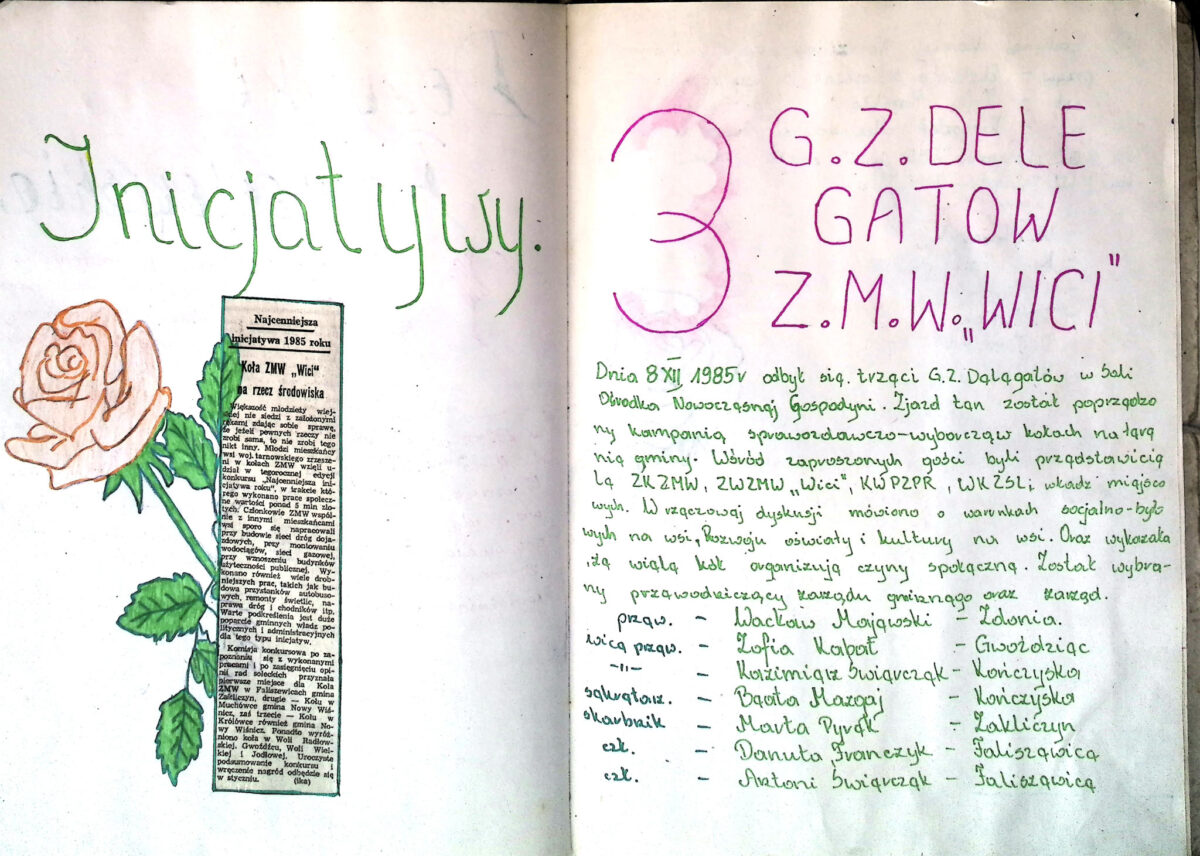 Inicjatywy.
Najcenniejsza
inicjatywa 1985 roku
Koła ZMW „Wici"
na rzecz środowiska
Większość młodzieży wiej-
skiej nie siedzi z założonymi
rękami zdając sobie sprawę,
że jeżeli pewnych rzeczy nie
zrobi sama, to nie zrobi tego
nikt inny. Młodzi mieszkańcy
wsi woj. tarnowskiego zrzesze-
ni w kołach ZMW wzięli u-
dział w tegorocznej edycji
konkursu „Najcenniejsza ini-
cjatywa roku", w trakcie któ-
rego wykonano prace społecz-
ne wartości ponad 5 mln zło-
tych. Członkowie ZMW wspól-
nie z innymi mieszkańcami
wsi sporo się napracowali
przy budowie sieci dróg doja-
zdowych, przy montowaniu
wodociągów, sieci gazowej,
przy wznoszeniu budynków
użyteczności publicznej. Wy-
konano również wiele drob-
niejszych prac, takich jak bu-
dowa przystanków autobuso-
wych, remonty świetlic, na-
prawa dróg i chodników itp.
Warte podkreślenia jest duże
poparcie gminnych władz po-
litycznych i administracyjnych
dla tego typu inicjatyw.
Komisja konkursowa po za-
poznaniu się z wykonanymi
pracami i po zasięgnięciu opi-
nii rad sołeckich przyznała
pierwsze miejsce dla Koła
ZMW w Faliszewicach gmina
Zakliczyn, drugie — Kołu w
Muchówce gmina Nowy Wiś-
nicz, zaś trzecie — Kołu w
Królówce również gmina No-
wy Wiśnicz. Ponadto wyróż-
niono koła w Woli Radłow-
skiej, Gwoźdźcu, Woli Wiel-
kiej i Jodłowej. Uroczyste
podsumowanie konkursu i
wręczenie nagród odbędzie się
w styczniu. (ika)
3 G.Z. DELE
GATOW
Z.M.W. „WICI"
Dnia 8 XII 1985r odbył się. trzeci G.Z. Delegatów w Sali
Ośrodka Nowoczesnej Gospodyni. Zjazd ten został poprzedzo
ny kampanią sprawozdawczo-wyborczą w kołach na tere
nie gminy. Wśród zaproszonych gości byli przedstawicie
le ZKZMW, ZWZMW „Wici", KWPZPR, WKZSL; władz miejsco
wych. W rzeczowej dyskusji mówiono o warunkach socjalno-byto
wych na wsi, Rozwoju oświaty i kultury na wsi. Oraz wykazała
, że wiele kół organizują czyny społeczne. Został wybra-
ny przewodniczący zarządu gminnego oraz zarząd.
przew. - Wacław Majewski - Zdonia.
wice przew. - Zofia Kapał - Gwoździec
-"- - Kazimierz Świerczek - Kończyska
sekretarz. - Beata Mazgaj - Kończyska
skarbnik - Marta Pyrek - Zakliczyn
czł. - Danuta Franczyk - Faliszewice
czł. - Antoni Świerczek - Faliszewice